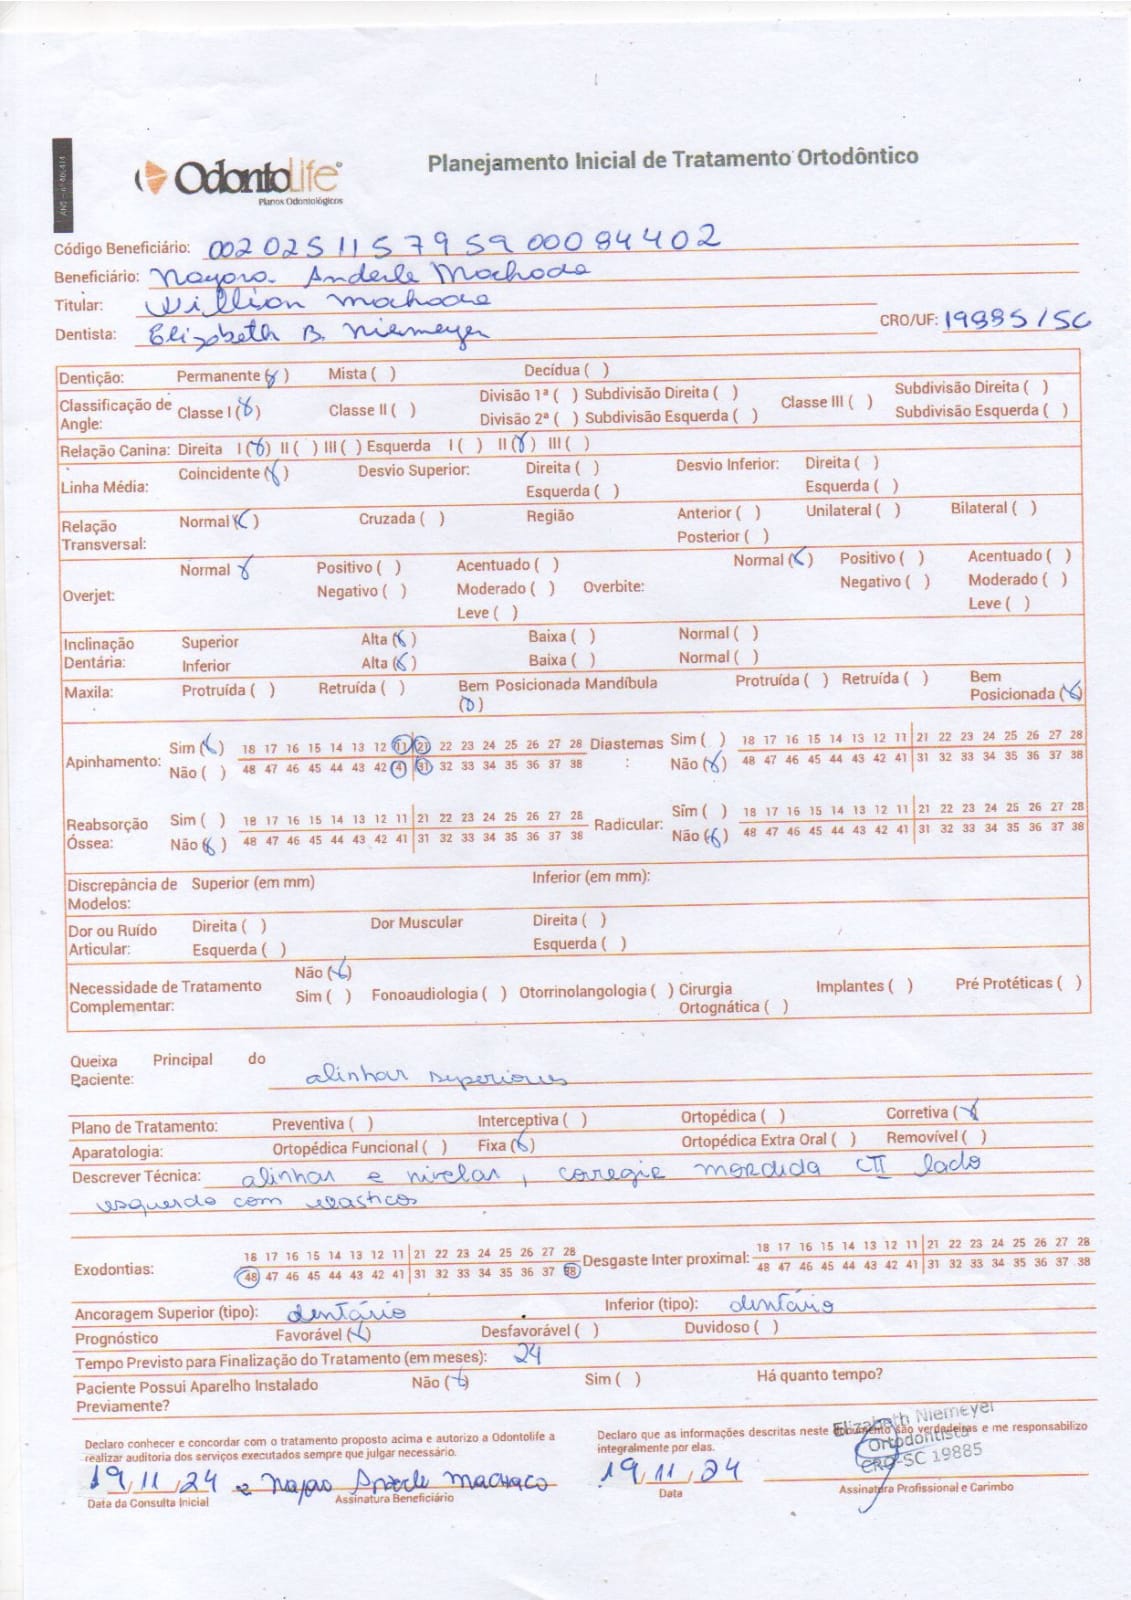 ANS - nº 406414
OdontoLife
Planos Odontológicos
Planejamento Inicial de Tratamento Ortodôntico
Código Beneficiário: 002025115795900084402
Beneficiário: Nayara Anderle Machado
Titular: Willian Machado
Dentista: Elizabeth B. Niemeyer CRO/UF: 19885/SC
Dentição: Permanente (x) Mista ( ) Decídua ( )
Classificação de Angle: Classe I (x) Classe II ( ) Divisão 1ª ( ) Subdivisão Direita ( ) Classe III ( ) Subdivisão Direita ( )
Divisão 2ª ( ) Subdivisão Esquerda ( ) Subdivisão Esquerda ( )
Relação Canina: Direita I (x) II ( ) III ( ) Esquerda I ( ) II (x) III ( )
Linha Média: Coincidente (x) Desvio Superior: Direita ( ) Desvio Inferior: Direita ( )
Esquerda ( ) Esquerda ( )
Relação Transversal: Normal (x) Cruzada ( ) Região Anterior ( ) Unilateral ( ) Bilateral ( )
Posterior ( )
Overjet: Normal x Positivo ( ) Acentuado ( ) Overbite: Normal (x) Positivo ( ) Acentuado ( )
Negativo ( ) Moderado ( ) Negativo ( ) Moderado ( )
Leve ( ) Leve ( )
Inclinação Dentária: Superior Alta (x) Baixa ( ) Normal ( )
Inferior Alta (x) Baixa ( ) Normal ( )
Maxila: Protruída ( ) Retruída ( ) Bem Posicionada (x) Mandíbula Protruída ( ) Retruída ( ) Bem Posicionada (x)
Apinhamento: Sim (x) 18 17 16 15 14 13 12 11 21 22 23 24 25 26 27 28 Diastemas : Sim ( ) 18 17 16 15 14 13 12 11 21 22 23 24 25 26 27 28
Não ( ) 48 47 46 45 44 43 42 41 31 32 33 34 35 36 37 38 Não (x) 48 47 46 45 44 43 42 41 31 32 33 34 35 36 37 38
Reabsorção Óssea: Sim ( ) 18 17 16 15 14 13 12 11 21 22 23 24 25 26 27 28 Radicular: Sim ( ) 18 17 16 15 14 13 12 11 21 22 23 24 25 26 27 28
Não (x) 48 47 46 45 44 43 42 41 31 32 33 34 35 36 37 38 Não (x) 48 47 46 45 44 43 42 41 31 32 33 34 35 36 37 38
Discrepância de Modelos: Superior (em mm) Inferior (em mm):
Dor ou Ruído Articular: Direita ( ) Dor Muscular Direita ( )
Esquerda ( ) Esquerda ( )
Necessidade de Tratamento Complementar: Não (x)
Sim ( ) Fonoaudiologia ( ) Otorrinolangologia ( ) Cirurgia Ortognática ( ) Implantes ( ) Pré Protéticas ( )
Queixa Principal do Paciente: alinhar superiores
Plano de Tratamento: Preventiva ( ) Interceptiva ( ) Ortopédica ( ) Corretiva (x
Aparatologia: Ortopédica Funcional ( ) Fixa (x) Ortopédica Extra Oral ( ) Removível ( )
Descrever Técnica: alinhar e nivelar, corregir mordida CII lado
esquerdo com elasticos
Exodontias: 18 17 16 15 14 13 12 11 21 22 23 24 25 26 27 28 Desgaste Inter proximal: 18 17 16 15 14 13 12 11 21 22 23 24 25 26 27 28
48 47 46 45 44 43 42 41 31 32 33 34 35 36 37 38 48 47 46 45 44 43 42 41 31 32 33 34 35 36 37 38
Ancoragem Superior (tipo): dentário Inferior (tipo): dentário
Prognóstico Favorável (x) Desfavorável ( ) Duvidoso ( )
Tempo Previsto para Finalização do Tratamento (em meses): 24
Paciente Possui Aparelho Instalado Previamente? Não (x) Sim ( ) Há quanto tempo?
Declaro conhecer e concordar com o tratamento proposto acima e autorizo a Odontolife a
realizar auditoria dos serviços executados sempre que julgar necessário.
19/11/24 Nayara Anderle Machado
Data da Consulta Inicial Assinatura Beneficiário
Declaro que as informações descritas neste documento são verdadeiras e me responsabilizo
integralmente por elas.
19/11/24
Data
Elizabeth Niemeyer
Ortodontista
CRO-SC 19885
Assinatura Profissional e Carimbo